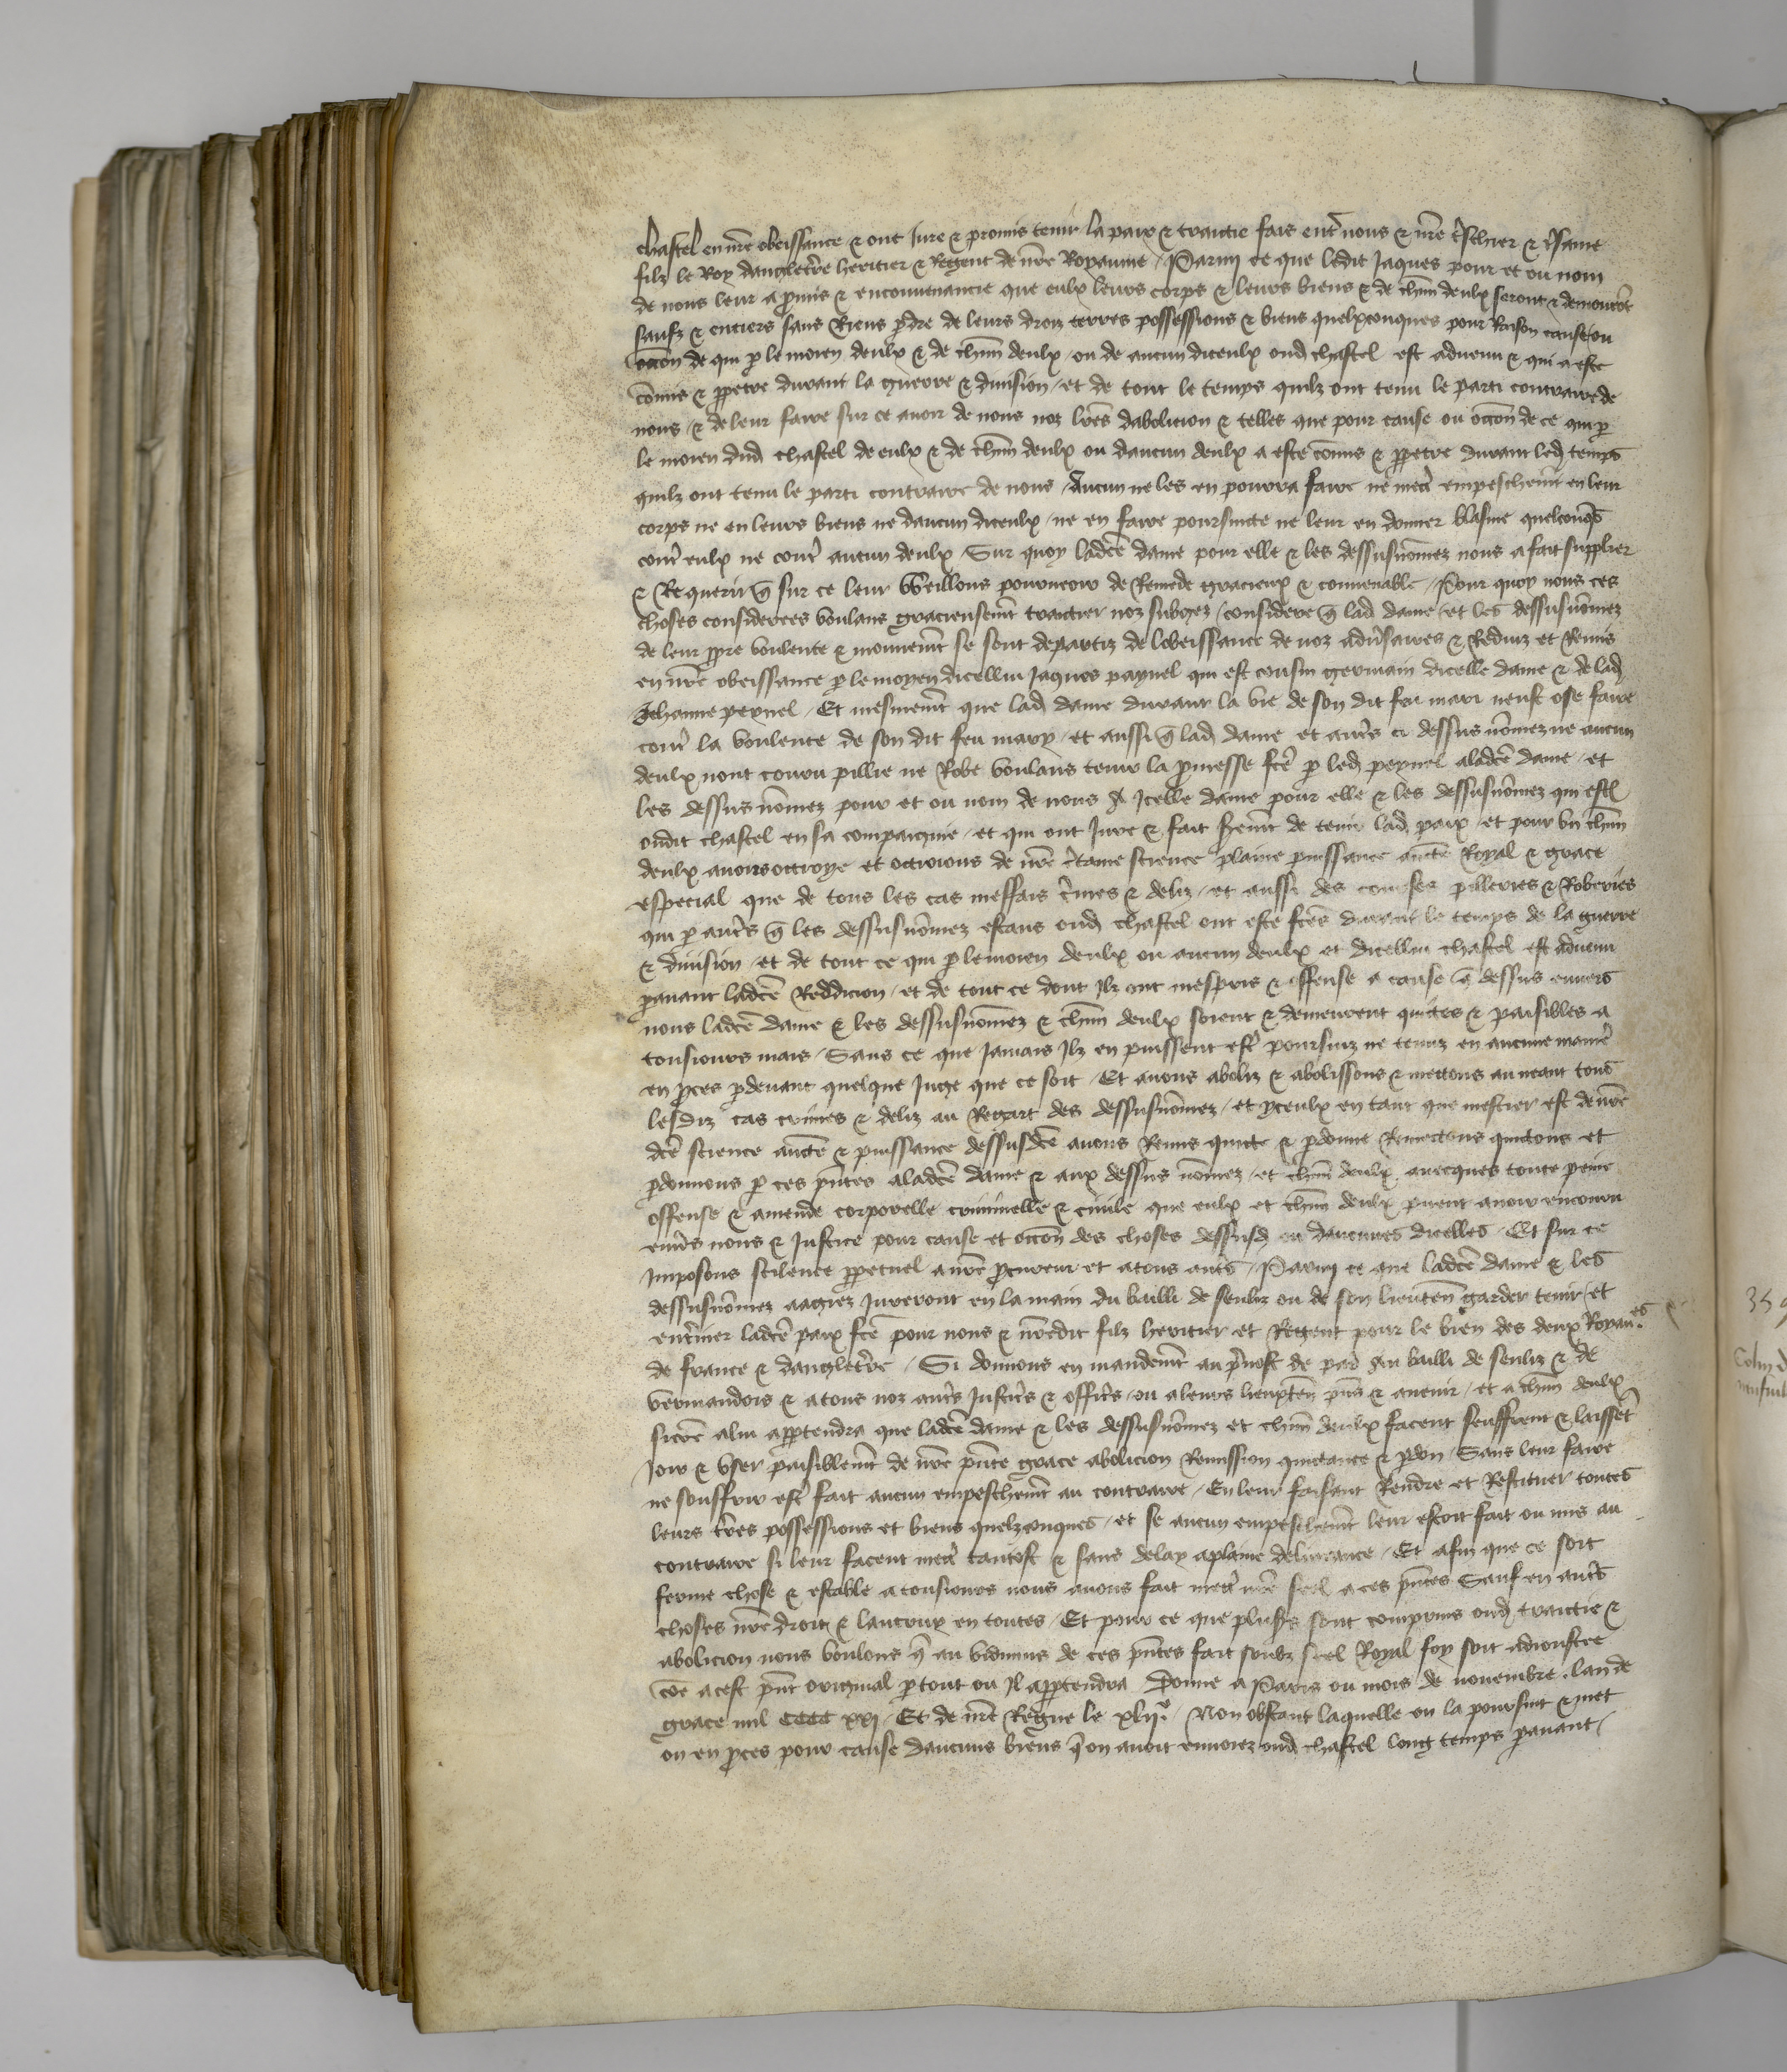 chastel en nr̃e obeissance & ont Jure & promis tenir la paix & traictie fais ent̾ nous & nr̃e t̾scher & t̾same
filz le Roy dangleter̃e heritier & Regent de nr̃e Royaume / Parmy ce que ledit Jaques pour et ou nom
de nous leur a p̃mis & enconvenancie que eulx leurs corps & leurs biens & de chũn deulx seront & demourõt
saufz & entiers sans Riens p̃dre de leurs droiz terres possessions & biens quelxconques pour Raison cause ou
occõn de qui p̱ le moien deulx & de chũn deulx ou de aucun diceulx oud chastel est advenu & qui a este
cõmis & pp̱etre durant la guerre & division / et de tout le temps quilz ont tenu le parti contraire de
nous / & de leur faire sur ce avoir de nous noz lr̃es dabolicion & telles que pour cause ou occõn de ce qui p̱
le moien dud chastel de eulx & de chũn deulx ou daucun deulx a este cõmis & pp̱etre durant led temps
quilz ont tenu le parti contraire de nous / Aucun ne les en pourra faire ne mect̾ empeschem̃t en leur
corps ne en leurs biens ne daucun diceulx / ne en faire poursuite ne leur en donner blasme quelconq̃s
cont̾ eulx ne cont̾ aucun deulx / Sur quoy ladc̃e dame pour elle & les dessusnõmez nous a fait supplier
& Requerir q̃ sur ce leur Weillons pourveoir de Remede gracieux & convenable / Pour quoy nous ces
choses considerees voulans gracieusem̃t traictier noz subgez / considere q̃ lad dame / et les dessusnõmez
de leur pp̱re voulente & mouvem̃t se sont departiz de lobeissance de noz adṽsaires & Reduiz et Remis
en nr̃e obeissance p̱ le moyen dicellui Jaques paynel qui est cousin germain dicelle dame & de lad
Jehanne peynel / Et mesmem̃t que lad dame durant la vie de son dit feu mari neust ose faire
cont̾ la voulente de son dit feu mary / et aussi q̃ lad dame et aut̾s ci dessus nõmez ne aucun
deulx nont couru pillie ne Robe voulans tenir la p̃messe fc̃e p̱ led peynel a ladc̃e dame / et
les dessus nõmez pour et ou nom de nous A Icelle dame pour elle & les dessusnõmez qui est̾
oudit chastel en sa compaignie / et qui ont Jure & fait serm̃t de tenir lad paix / et pour un chũn
deulx avons octroye et octroions de nr̃e c̾taine science plaine puissance auct̃e Royal & grace
especial que de tous les cas meffais c̾mes & deliz / et aussi des courses pilleries & Roberies
qui p̱ aut̾s q̃ les dessusnõmez estans oud chastel ont este fc̃es durant le temps de la guerre
& division / et de tout ce qui p̱ le moien deulx ou aucun deulx et dicellui chastel est advenu
p̱avant ladc̃e Reddicion / et de tout ce dont Ilz ont mespris & offense a cause q̃ dessus envers
nous ladc̃e dame & les dessusnõmez & chũn deulx soient & demeurent quictes & paisibles a
tousiours mais / Sans ce que Jamais Ilz en puissent est̾ poursuiz ne tenuz en aucune manie̾
en p̃ces p̱devant quelque Juge que ce soit / Et avons aboliz & abolissons & mettons au neant tous
lesdiz cas crimes & deliz au Regart des dessusnõmez / et yceulx en tant que mestier est de nr̃e
dc̃e science auct̃e & puissance dessusdc̃e avons Remis quicte & p̱donne Remectons quictons et
p̱donnons p̱ ces p̃ntes a ladc̃e dame & aux dessus nõmez / et chũn deulx avecques toute peine
offense & amende corporelle criminelle & civile que eulx et chũn deulx pevent avoir encouru
env̾s nous & Justice pour cause et occõn des choses dessusd ou daucunes dicelles / Et sur ce
Imposons scilence pp̱etuel a nr̃e p̃cureur et a tous aut̾s / Parmy ce que ladc̃e dame & les
dessusnõmez aagiez Jureront en la main du bailli de Senliz ou de son lieuten̾ garder tenir / et
ent̾iner ladc̃e paix fc̃e pour nous & nr̃edit filz heritier et Regent pour le bien des deux Royau.es
de france & dangleter̃e / Si donnons en mandem̃t au p̃vost de par̾ Au bailli de senliz & de
vermandois & a tous noz aut̾s Justic̾s & offic̾s / ou a leurs lieuxten̾ p̃ns & avenir / et a chũn deulx
sicõe a lui app̱tendra que ladc̃e dame & les dessusnõmez et chũn deulx facent seuffrent & laisset̾
Joir & user paisiblem̃t de nr̃e p̃nte grace abolicion Remission quictance & p̱don / Sans leur faire
ne souffrir est̾ fait aucun empeschem̃t au contraire / En leur faisant Rendre et Restituer toutes
leurs t̾res possessions et biens quelzconques / et se aucun empeschem̃t leur estoit fait ou mis au
contraire si leur facent mect̾ tantost & sans delay a plaine delivrance / Et afin que ce soit
ferme chose & estable a tousiours nous avons fait mect̾ nr̃e seel a ces p̃ntes Sauf en aut̾s
choses nr̃e droit & lautruy en toutes / Et pour ce que plus̾s sont comprins oud traictie &
abolicion nous voulons q̃ au vidimus de ces p̃ntes fait soubz seel Royal foy soit adioustee
cõe a cest p̃nt original p̱tout ou Il app̱tendra Donne a Paris ou mois de novembre / lan de
grace mil CCCC xxj / Et de nr̃e Regne le xlij.e / Non obstant laquelle on la poursuit & met
on en p̃ces pour cause daucuns biens q̃ on avoit envoiez oud chastel long temps p̱avant /